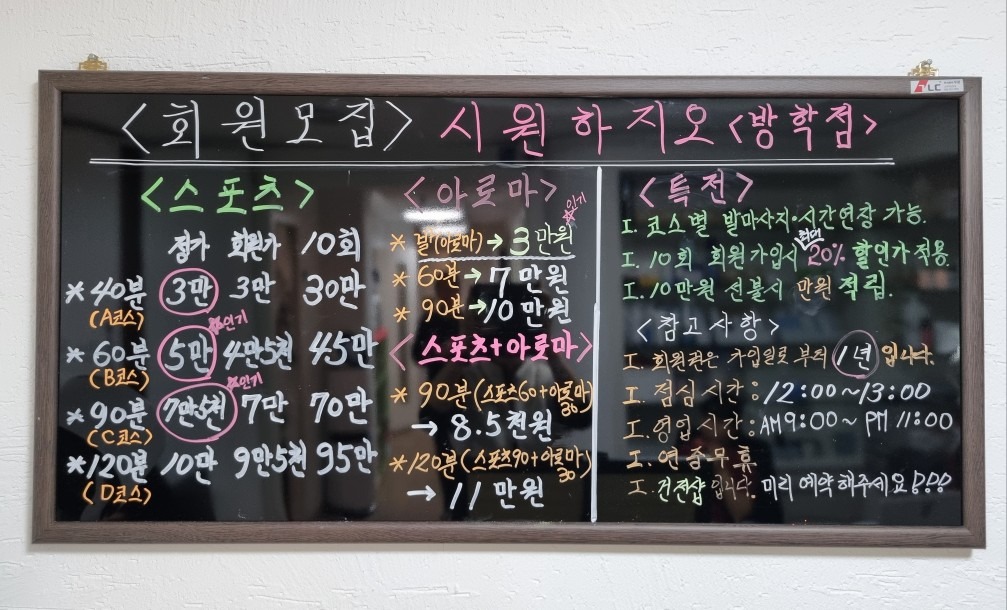 <회원모집> 시원하지오 <방학점>
<스포츠>
정가 회원가 10회
* 40분 3만 3만 30만
(A코스)
인기
* 60분 5만 4만5천 45만
(B코스)
인기
* 90분 7만5천 7만 70만
(C코스)
*120분 10만 9만5천 95만
(D코스)
<아로마>
인기
* 발(아로마) → 3만원
* 60분 → 7만원
* 90분 → 10만원
<스포츠+아로마>
* 90분 (스포츠60+아로마30)
→ 8.5천원
*120분 (스포츠90+아로마30)
→ 11만원
<특전>
I. 코스별 발마사지·시간연장 가능.
I. 10회 회원가입시 최대 20% 할인가 적용.
I. 10만원 선불시 만원 적립.
<참고사항>
I. 회원권은 가입일로 부터 1년 입니다.
I. 점심시간 : 12:00~13:00
I. 영업시간 : AM 9:00~ PM 11:00
I. 연중무휴
I. 건전샵입니다. 미리 예약해주세요!!!
LC